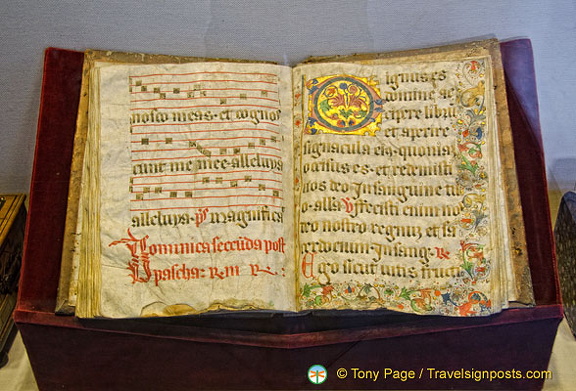 nosco meas· et cognos
cunt me mee·alleluya
alleluya· ps magnifica
Dominica secunda post
pascha: Rm R
ignus es
domine ac
cipere libru
et aperire
signacula eiꝰ·quonia
occisus es·et redemisti
nos deo·In sanguine tu
o·alla
deo nostro regnu et sa
cerdocium·In sang·
Ego sicut uitis fructi
© Tony Page / Travelsignposts.com